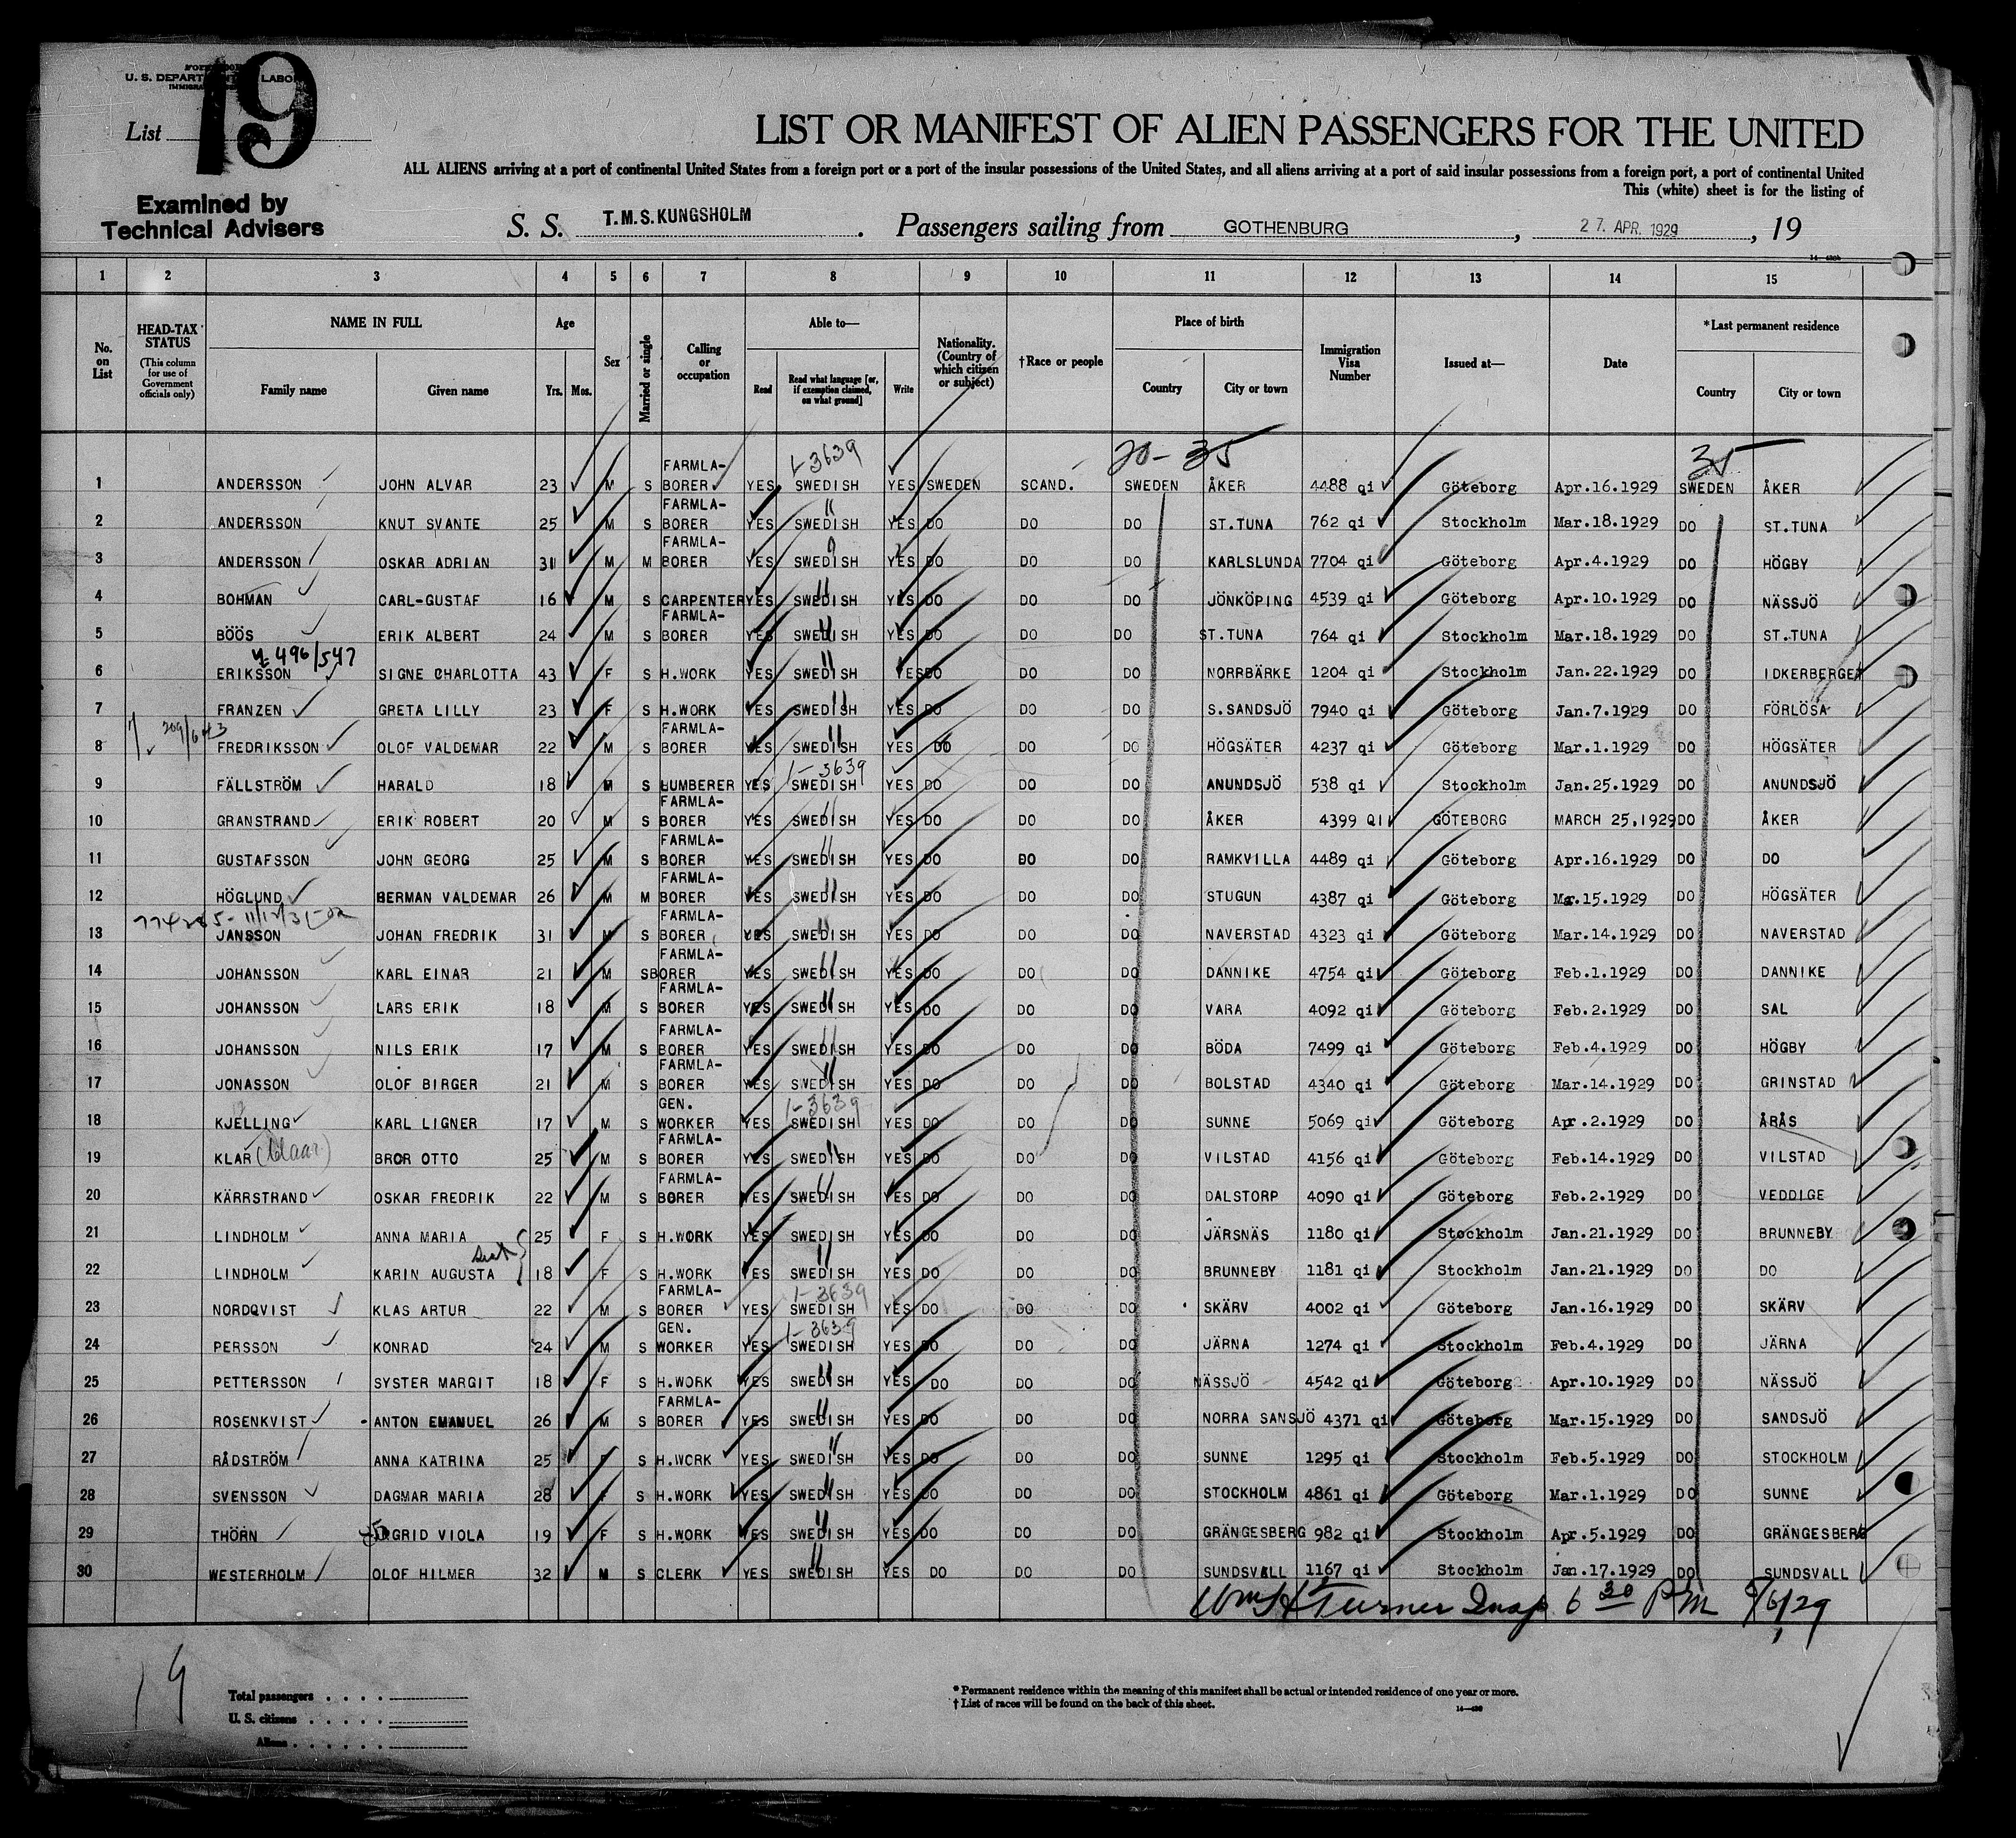 U. S. DEPARTMENT LABOR
List 19
LIST OR MANIFEST OF ALIEN PASSENGERS FOR THE UNITED
ALL ALIENS arriving at a port of continental United States from a foreign port or a port of the insular possessions of the United States, and all aliens arriving at a port of said insular possessions from a foreign port, a port of continental United
This (white) sheet is for the listing of
Examined by
Technical Advisers
S. S. T.M.S. KUNGSHOLM. Passengers sailing from GOTHENBURG, 27. APR. 1929, 19
1 2 3 4 5 6 7 8 9 10 11 12 13 14 15
No. on List
HEAD-TAX STATUS (This column for use of Government officials only)
NAME IN FULL Family name Given name
Age Yrs. Mos.
Sex
Married or single
Calling or occupation
Able to— Read Read what language [or, if exemption claimed, on what ground] Write
Nationality. (Country of which citizen or subject)
†Race or people
Place of birth Country City or town
Immigration Visa Number
Issued at—
Date
*Last permanent residence Country City or town
1-3639 20-35 35
1 ANDERSSON JOHN ALVAR 23 M S FARMLA-BORER YES SWEDISH YES SWEDEN SCAND. SWEDEN ÅKER 4488 qi Göteborg Apr.16.1929 SWEDEN ÅKER
2 ANDERSSON KNUT SVANTE 25 M S FARMLA-BORER YES SWEDISH YES DO DO DO ST.TUNA 762 qi Stockholm Mar.18.1929 DO ST.TUNA
3 ANDERSSON OSKAR ADRIAN 31 M M FARMLA-BORER YES SWEDISH YES DO DO DO KARLSLUNDA 7704 qi Göteborg Apr.4.1929 DO HÖGBY
4 BOHMAN CARL-GUSTAF 16 M S CARPENTER YES SWEDISH YES DO DO DO JÖNKÖPING 4539 qi Göteborg Apr.10.1929 DO NÄSSJÖ
5 BÖÖS ERIK ALBERT 24 M S FARMLA-BORER YES SWEDISH YES DO DO DO ST.TUNA 764 qi Stockholm Mar.18.1929 DO ST.TUNA
496/547
6 ERIKSSON SIGNE CHARLOTTA 43 F S H.WORK YES SWEDISH YES DO DO DO NORRBÄRKE 1204 qi Stockholm Jan.22.1929 DO IDKERBERGET
7 FRANZEN GRETA LILLY 23 F S H.WORK YES SWEDISH YES DO DO DO S.SANDSJÖ 7940 qi Göteborg Jan.7.1929 DO FÖRLÖSA
209/643
8 FREDRIKSSON OLOF VALDEMAR 22 M S FARMLA-BORER YES SWEDISH YES DO DO DO HÖGSÄTER 4237 qi Göteborg Mar.1.1929 DO HÖGSÄTER
1-3639
9 FÄLLSTRÖM HARALD 18 M S LUMBERER YES SWEDISH YES DO DO DO ANUNDSJÖ 538 qi Stockholm Jan.25.1929 DO ANUNDSJÖ
10 GRANSTRAND ERIK ROBERT 20 M S FARMLA-BORER YES SWEDISH YES DO DO DO ÅKER 4399 QI GÖTEBORG MARCH 25,1929 DO ÅKER
11 GUSTAFSSON JOHN GEORG 25 M S FARMLA-BORER YES SWEDISH YES DO DO DO RAMKVILLA 4489 qi Göteborg Apr.16.1929 DO DO
12 HÖGLUND BERMAN VALDEMAR 26 M M FARMLA-BORER YES SWEDISH YES DO DO DO STUGUN 4387 qi Göteborg Mar.15.1929 DO HÖGSÄTER
13 JANSSON JOHAN FREDRIK 31 M S FARMLA-BORER YES SWEDISH YES DO DO DO NAVERSTAD 4323 qi Göteborg Mar.14.1929 DO NAVERSTAD
14 JOHANSSON KARL EINAR 21 M S FARMLA-BORER YES SWEDISH YES DO DO DO DANNIKE 4754 qi Göteborg Feb.1.1929 DO DANNIKE
15 JOHANSSON LARS ERIK 18 M S FARMLA-BORER YES SWEDISH YES DO DO DO VARA 4092 qi Göteborg Feb.2.1929 DO SAL
16 JOHANSSON NILS ERIK 17 M S FARMLA-BORER YES SWEDISH YES DO DO DO BÖDA 7499 qi Göteborg Feb.4.1929 DO HÖGBY
17 JONASSON OLOF BIRGER 21 M S FARMLA-BORER YES SWEDISH YES DO DO DO BOLSTAD 4340 qi Göteborg Mar.14.1929 DO GRINSTAD
1-3639
18 KJELLING KARL LIGNER 17 M S GEN. WORKER YES SWEDISH YES DO DO DO SUNNE 5069 qi Göteborg Apr.2.1929 DO ÅRÅS
19 KLAR (Klaar) BROR OTTO 25 M S FARMLA-BORER YES SWEDISH YES DO DO DO VILSTAD 4156 qi Göteborg Feb.14.1929 DO VILSTAD
20 KÄRRSTRAND OSKAR FREDRIK 22 M S FARMLA-BORER YES SWEDISH YES DO DO DO DALSTORP 4090 qi Göteborg Feb.2.1929 DO VEDDIGE
21 LINDHOLM ANNA MARIA 25 F S H.WORK YES SWEDISH YES DO DO DO JÄRSNÄS 1180 qi Stockholm Jan.21.1929 DO BRUNNEBY
22 LINDHOLM KARIN AUGUSTA 18 F S H.WORK YES SWEDISH YES DO DO DO BRUNNEBY 1181 qi Stockholm Jan.21.1929 DO DO
1-3639
23 NORDQVIST KLAS ARTUR 22 M S FARMLA-BORER YES SWEDISH YES DO DO DO SKÄRV 4002 qi Göteborg Jan.16.1929 DO SKÄRV
1-3639
24 PERSSON KONRAD 24 M S GEN. WORKER YES SWEDISH YES DO DO DO JÄRNA 1274 qi Stockholm Feb.4.1929 DO JÄRNA
25 PETTERSSON SYSTER MARGIT 18 F S H.WORK YES SWEDISH YES DO DO DO NÄSSJÖ 4542 qi Göteborg Apr.10.1929 DO NÄSSJÖ
26 ROSENKVIST ANTON EMANUEL 26 M S FARMLA-BORER YES SWEDISH YES DO DO DO NORRA SANSJÖ 4371 qi Göteborg Mar.15.1929 DO SANDSJÖ
27 RÅDSTRÖM ANNA KATRINA 25 F S H.WORK YES SWEDISH YES DO DO DO SUNNE 1295 qi Stockholm Feb.5.1929 DO STOCKHOLM
28 SVENSSON DAGMAR MARIA 28 F S H.WORK YES SWEDISH YES DO DO DO STOCKHOLM 4861 qi Göteborg Mar.1.1929 DO SUNNE
29 THÖRN INGRID VIOLA 19 F S H.WORK YES SWEDISH YES DO DO DO GRÄNGESBERG 982 qi Stockholm Apr.5.1929 DO GRÄNGESBERG
30 WESTERHOLM OLOF HILMER 32 M S CLERK YES SWEDISH YES DO DO DO SUNDSVALL 1167 qi Stockholm Jan.17.1929 DO SUNDSVALL
Wm H Turner Insp. 6 30 PM 5/6/29
19
Total passengers
U. S. citizens
Aliens
* Permanent residence within the meaning of this manifest shall be actual or intended residence of one year or more.
† List of races will be found on the back of this sheet.